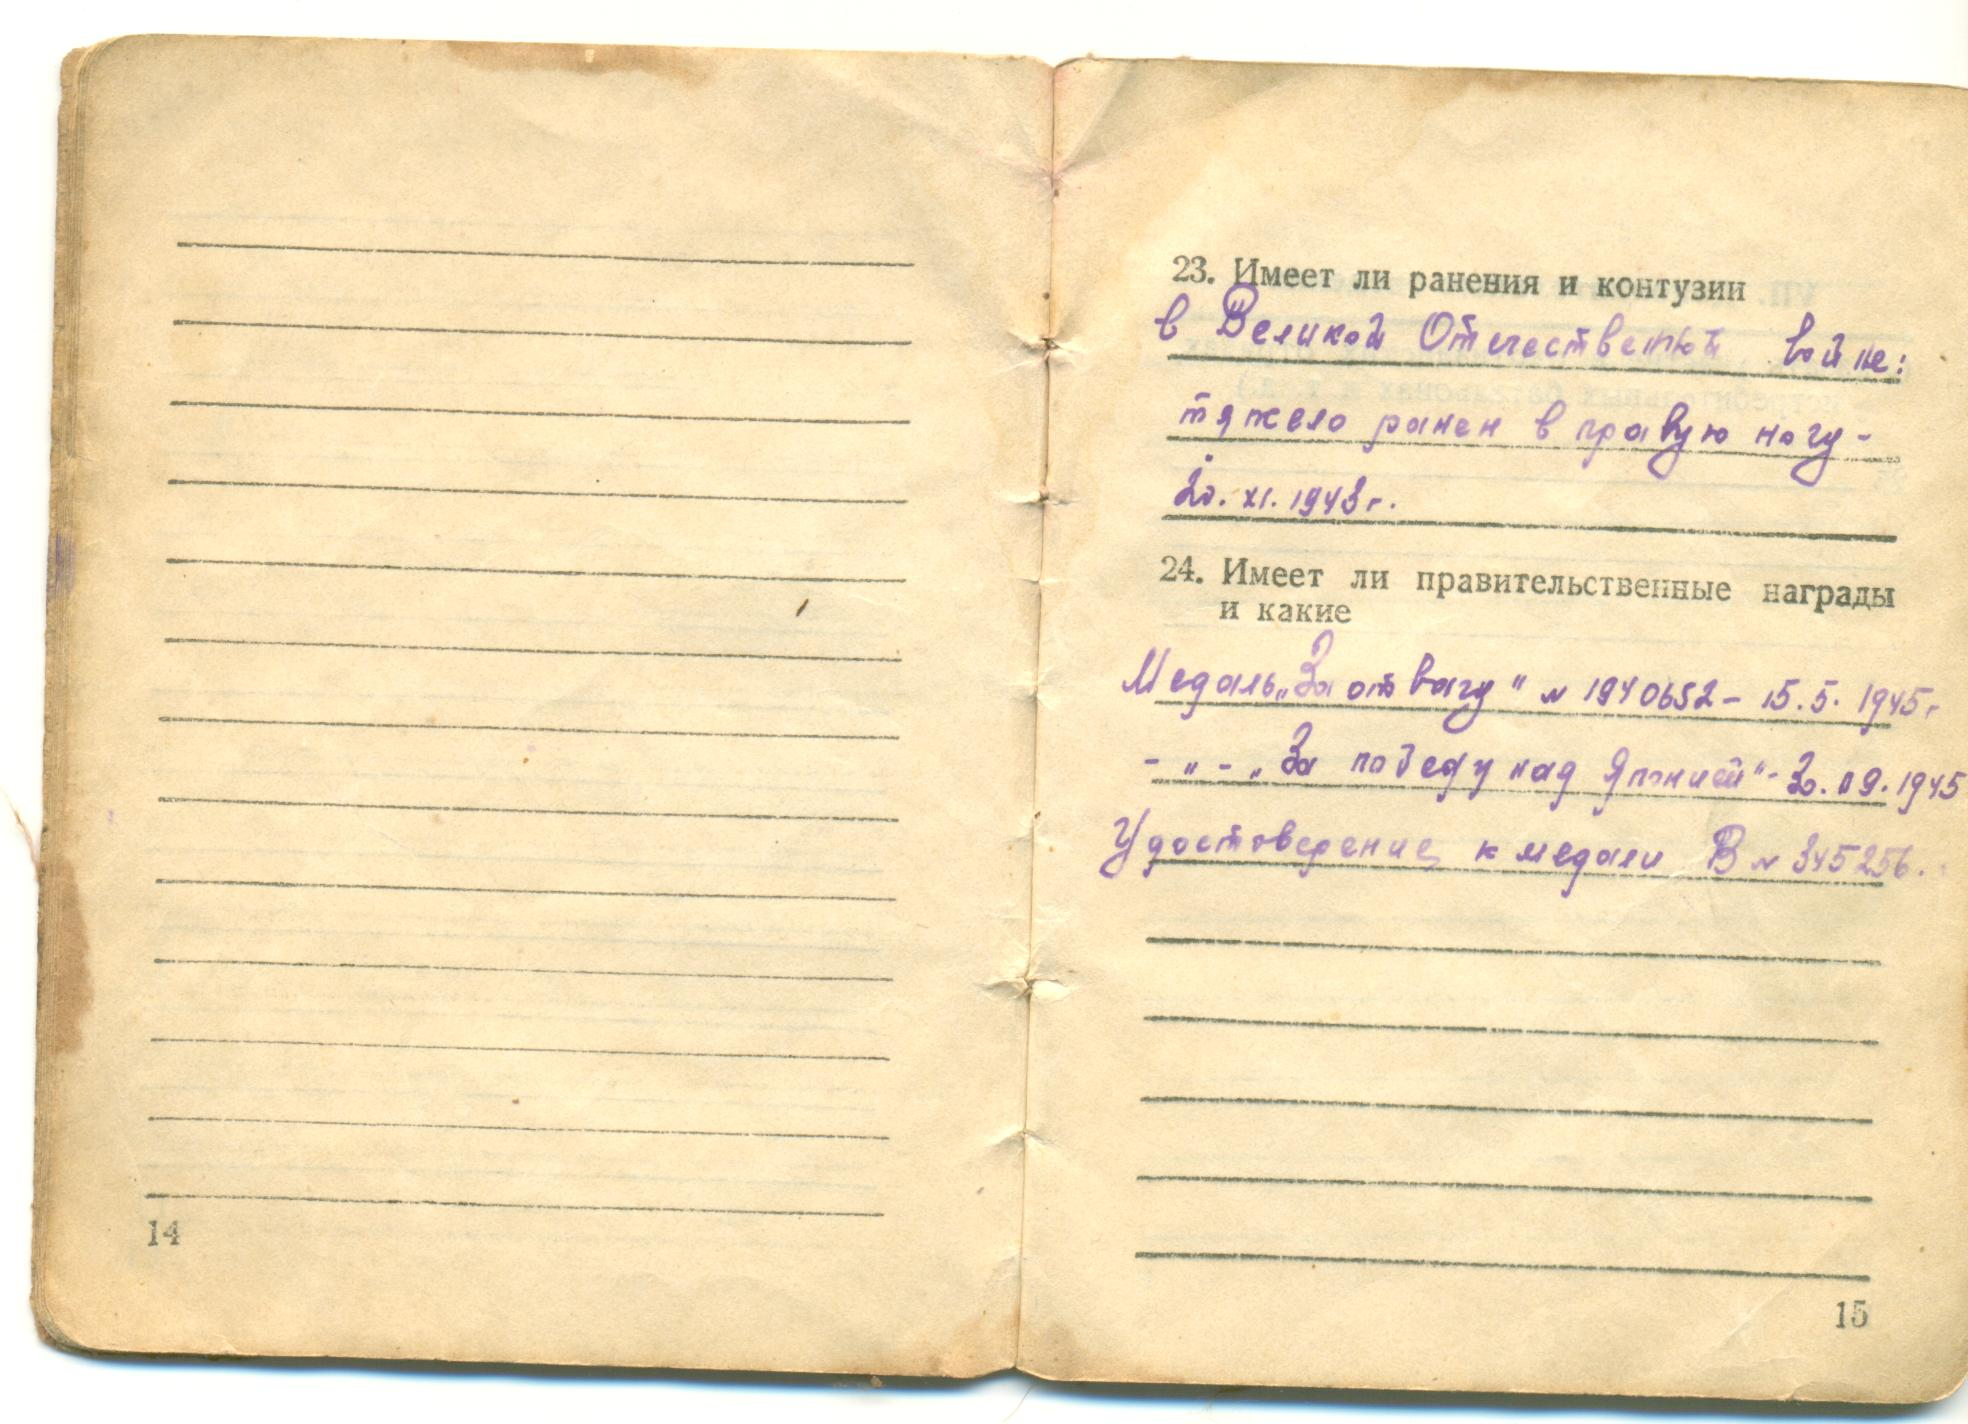 14
23. Имеет ли ранения и контузии
в Великой Отечественной войне:
тяжело ранен в правую ногу -
20. XI. 1943 г.
24. Имеет ли правительственные награды
и какие
Медаль „За отвагу" № 1940652 - 15.5. 1945 г
- „ - „За победу над Японией" - 30.09.1945
Удостоверение к медали В № 345256.
15